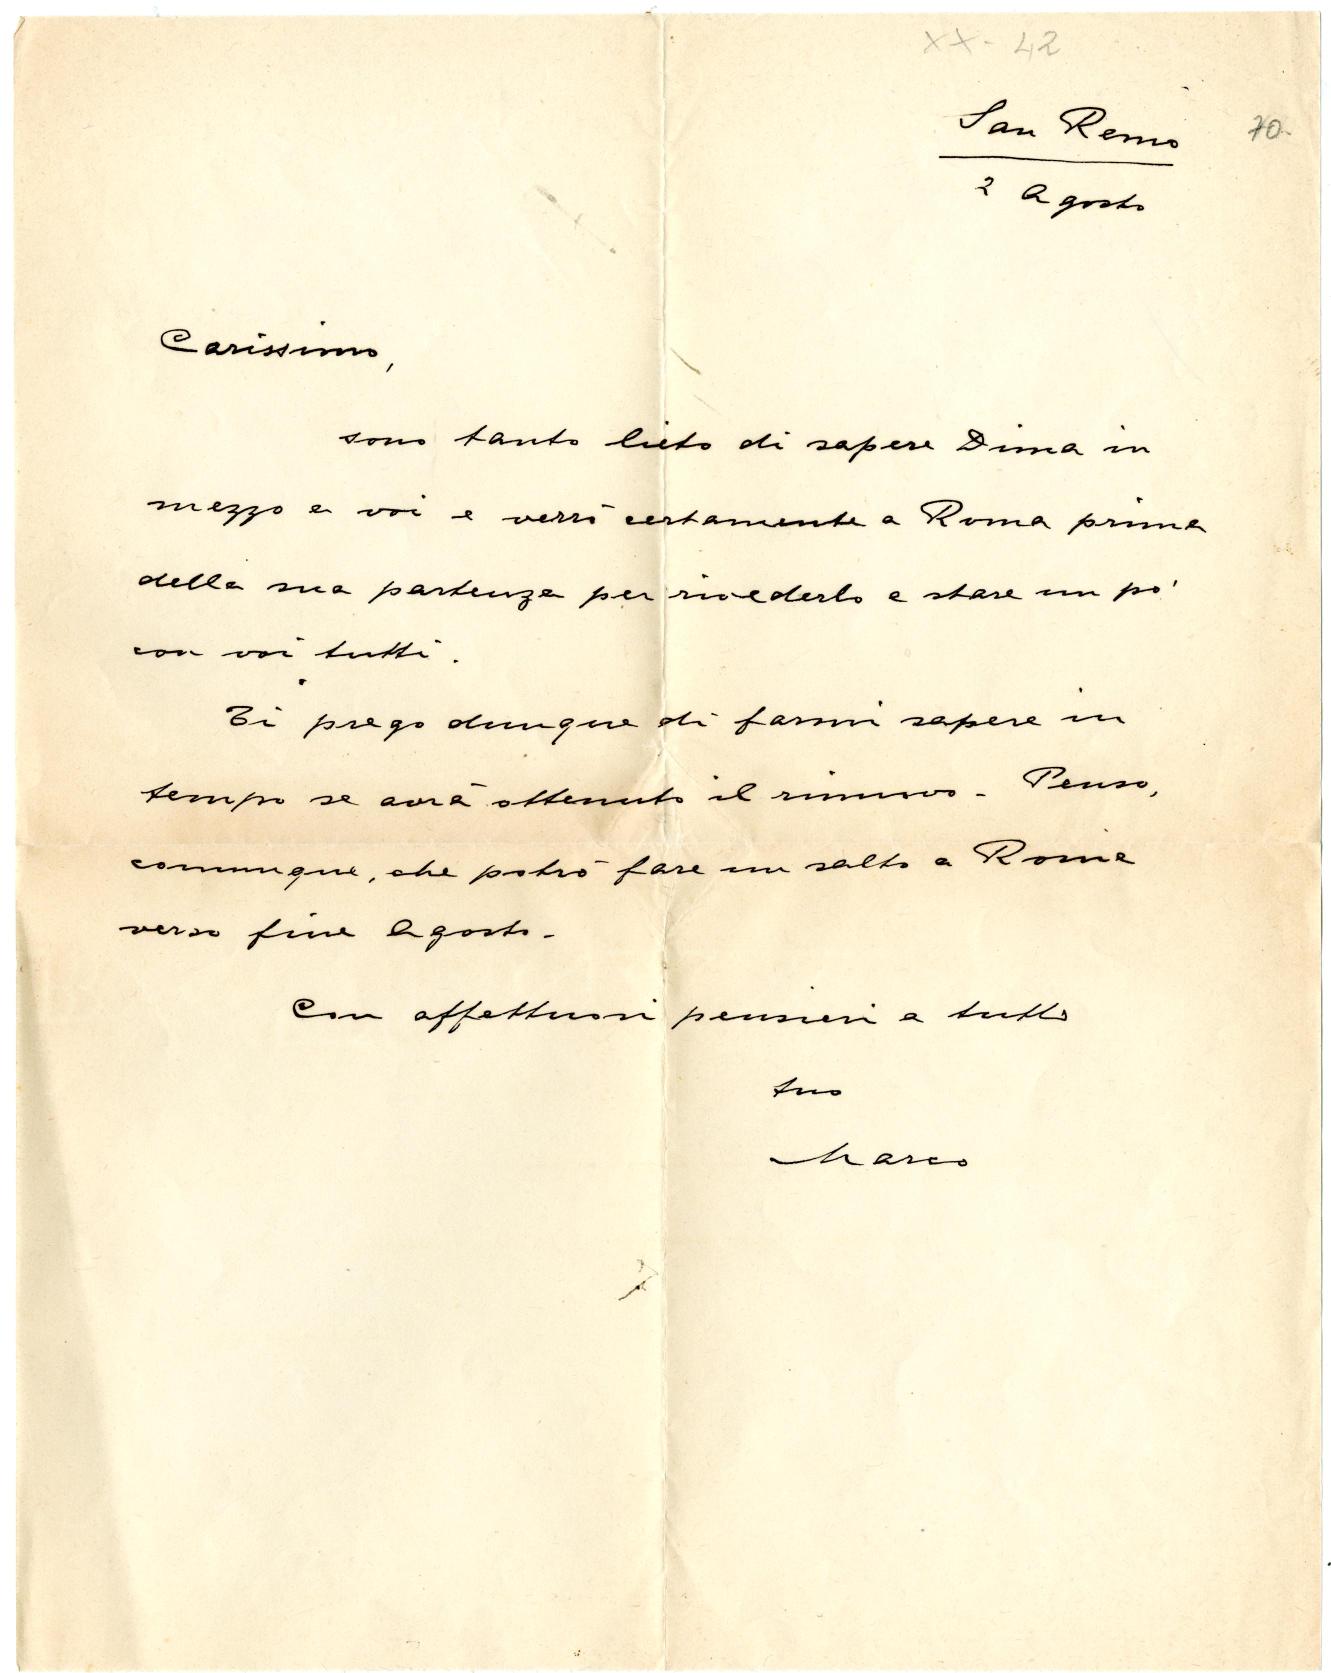 XX - 42
San Remo
70
2 Agosto
Carissimo,
sono tanto lieto di sapere Dima in
mezzo a voi e verrò certamente a Roma prima
della sua partenza per rivederlo e stare un po'
con voi tutti.
Ti prego dunque di farmi sapere in
tempo se avrà ottenuto il rinnovo - Penso,
comunque, che potrò fare un salto a Roma
verso fine Agosto -
Con affettuosi pensieri a tutti
tuo
Marco